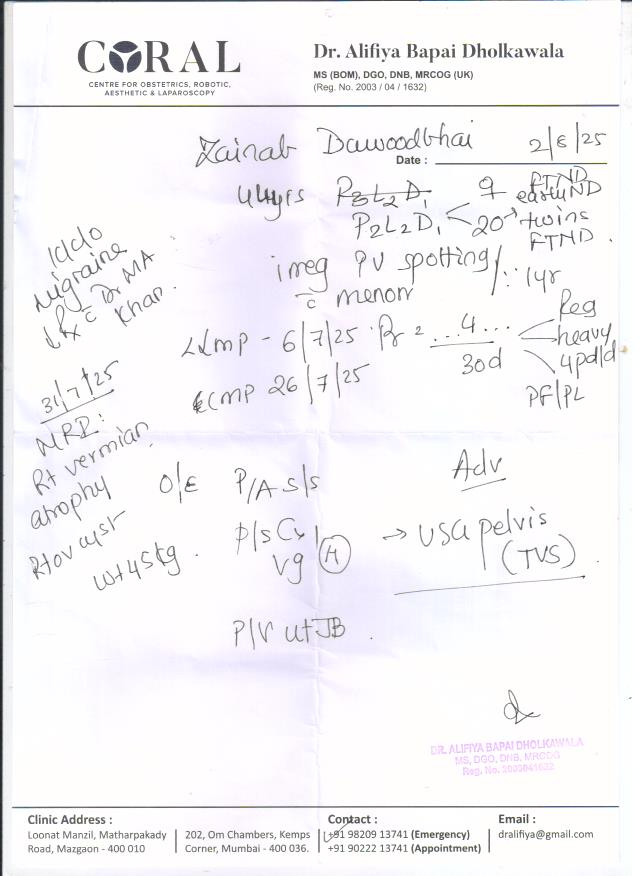 CORAL
CENTRE FOR OBSTETRICS, ROBOTIC,
AESTHETIC & LAPAROSCOPY
Dr. Alifiya Bapai Dholkawala
MS (BOM), DGO, DNB, MRCOG (UK)
(Reg. No. 2003 / 04 / 1632)
Zainab Dawoodbhai
Date : 2/8/25
44yrs P3L2D1
P2L2D1
9 FTND
early ND
20 → twins
FTND
k/c/o
migraine
Rx c̄ Dr MA
Khan
irreg PV spotting
c̄ menorr
∵ 1yr
LMP - 6/7/25 Pr = ...4...
30d
Reg
heavy
4pd/d
PF/PL
CMP 26/7/25
31/7/25
MRI:
Rt vermian
atrophy
Rt ov cyst
Wt 45kg.
O/E P/A S/S
P/S Cx
Vg (H)
P/V ut JB
Adv
→ USG pelvis
(TVS)
DR. ALIFIYA BAPAI DHOLKAWALA
MS, DGO, DNB, MRCOG
Reg. No. 2003041632
Clinic Address :
Loonat Manzil, Matharpakady
Road, Mazgaon - 400 010
202, Om Chambers, Kemps
Corner, Mumbai - 400 036.
Contact :
+91 98209 13741 (Emergency)
+91 90222 13741 (Appointment)
Email :
dralifiya@gmail.com